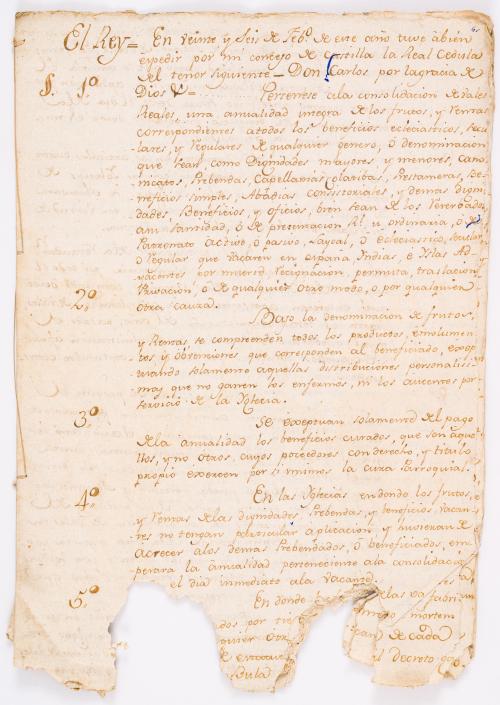 El Rey = En veinte y Seis de Feb.o de este año tuve abien
expedir por mi consejo de Castilla la Real Cedula
del tenor siguiente — Don Carlos, por lagracia de
§. 1.o Dios &.= Pertenese ala consolidacion de Vales
Reales, una anualidad integra de los frutos, y Rentas
correspondientes atodos los beneficios eclesiasticos, Secu
lares, y Regulares de qualquier genero, ô denominacion
que sean, como Dignidades mayores, y menores, cano
nicatos, Prebendas, Capellanias colatibas, Prestameras, Be
neficios simples, Abadias consistoriales, y demas digni
dades, Beneficios, y oficios, bien sean de los Reserbados
ami Santidad, ô de presentacion R.l u ordinaria, ô de
Patronato actibo, ô pasivo, Laycal, ô eclesiastico, Secular
ô Regular que vacaren en españa Indias, é Islas Ad
yacentes por muerte, resignacion, permuta, traslacion
Privacion, ô de qualquier otro modo, o por qualquiera
otra causa.
2.o Bajo la denominacion de frutos,
y Rentas, se comprenden todos los productos, emolumen
tos, y obenciones que corresponden al beneficiado, excep
tuando solamente aquellas distribuciones personalissi
mas que no ganen los enfermos, ni los aucentes por
serbicio de la Yglecia.
3.o Se exceptuan solamente del pago
dela anualidad los beneficios curados, que son aque
llos, y no otros, cuyos poceedores conderecho, y titulo
propio exercen por si mismos la cura Parroquial.
4.o En las Yglecias endonde los frutos,
y Rentas delas dignidades Prebendas, y beneficios Vacan
tes no tengan particular aplicacion, y huvieran de
acrecer alos demas Prebendados, ô beneficiados, em
perara la anualidad perteneciente ala consolidacion
el dia inmediato ala Vacante.
5.o En donde
delas
dos por
mortem
quier otra
de cada
el Decreto
Bula